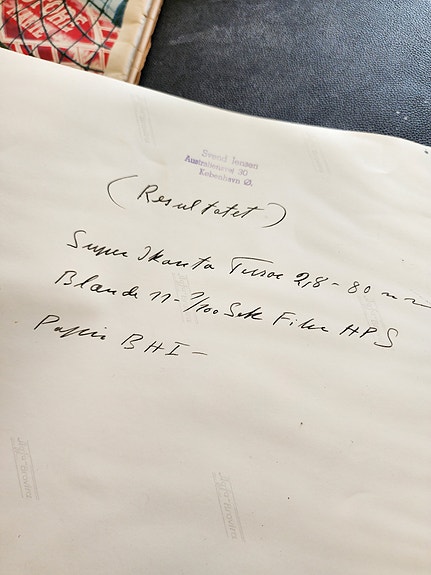 Svend Jensen
Australiensvej 30
København Ø.
(Resultatet)
Super Ikonta Tessar 2,8 - 80 mm
Blænde 11 - 1/100 Sek Film HPS
Papir BHI -